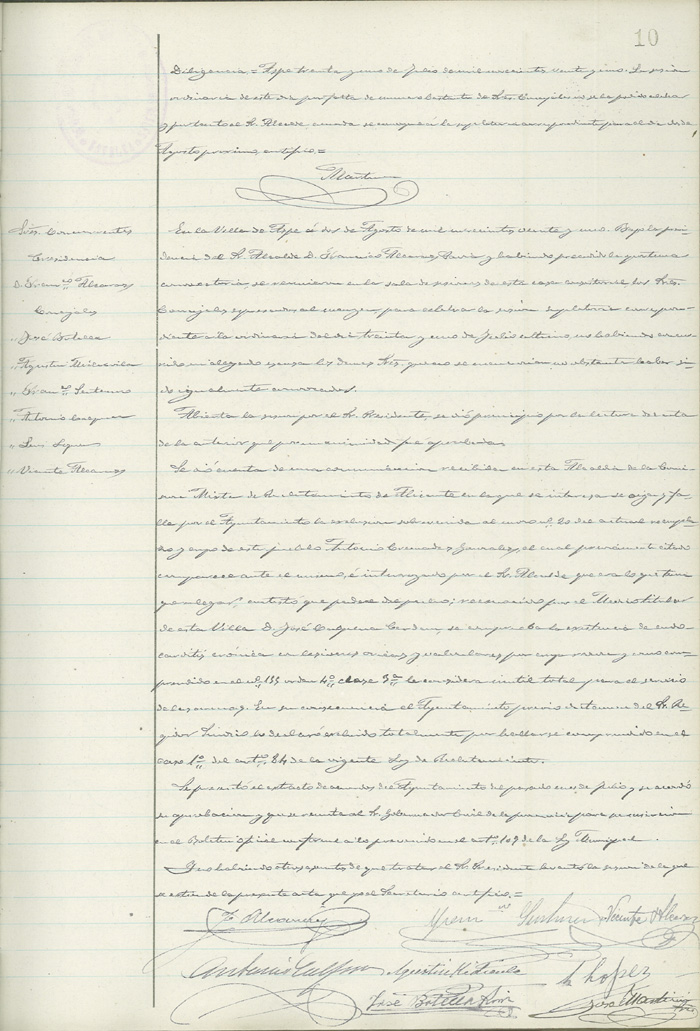 10
Diligencia = Aspe treinta y uno de Julio de mil novecientos veinte y uno. La sesion
ordinaria de este dia por falta de numero bastante de Sres. Concejales no se ha podido celebrar
y por tanto el Sr. Alcalde, acuerda se convoque á la supletoria correspondiente para el dia dos de
Agosto proximo, certifico. =
Martinez
Sres. Concurrentes
Presidencia
D. Franco Alcaraz
Concejales
" José Botella
" Agustin
" Franco
" Antonio
" Luis
" Vicente Alcaraz
En la Villa de Aspe á dos de Agosto de mil novecientos veinte y uno. Bajo la presi-
dencia del Sr. Alcalde D. Francisco Alcaraz y habiendo precedido la oportuna
convocatoria, se reunieron en la sala de sesiones de esta casa consistorial los Sres.
Concejales expresados al margen para celebrar la sesion supletoria correspon-
diente a la ordinaria del dia treinta y uno de Julio ultimo, no habiendo concu-
rrido ni alegado excusa los demas Sres. que no se mencionan no obstante haber si-
do igualmente convocados.
Abierta la sesion por el Sr. Presidente, se dió principio por la lectura del acta
de la anterior que por unanimidad fue aprobada.
Se dió cuenta de una comunicacion recibida en esta Alcaldia de la Comi-
sion Mixta de Reclutamiento de Alicante en la que se interesa se oiga y fa-
lle por el Ayuntamiento la exclusion sobrevenida al mozo nº del actual reempla-
zo y cupo de este pueblo Antonio Cremades Gonzalez, el cual previamente citado
comparece ante el mismo, é interrogado por el Sr. Alcalde que era lo que tenia
que alegar, contestó que padece del pecho; reconocido por el Medico titular
de esta Villa D. José Cerdan, se comprueba la existencia de endo-
carditis crónica con lesiones y valvulares por cuya razon y como com-
prendido en el nº 135 orden 4º clase 3ª le considera inutil total para el servicio
de las armas. En su consecuencia el Ayuntamiento previo dictamen del Sr. Re-
gidor Sindico lo declaró excluido totalmente por hallarse comprendido en el
caso 1º del artº. 84 de la vigente Ley de Reclutamiento.
Se presentó el extracto de acuerdos del Ayuntamiento del pasado mes de Julio, y se acordó
su aprobacion y que se remita al Sr. Gobernador Civil de la provincia para su insercion
en el Boletin Oficial conforme a lo prevenido en el artº. 109 de la Ley Municipal.
Y no habiendo otros asuntos de que tratar el Sr. Presidente levantó la sesion de la que
se extiende la presente acta que yo el Secretario certifico. =
F. Alcaraz
Vicente Alcaraz
Antonio
Agustin
L. Lopez
José Botella
José Martinez